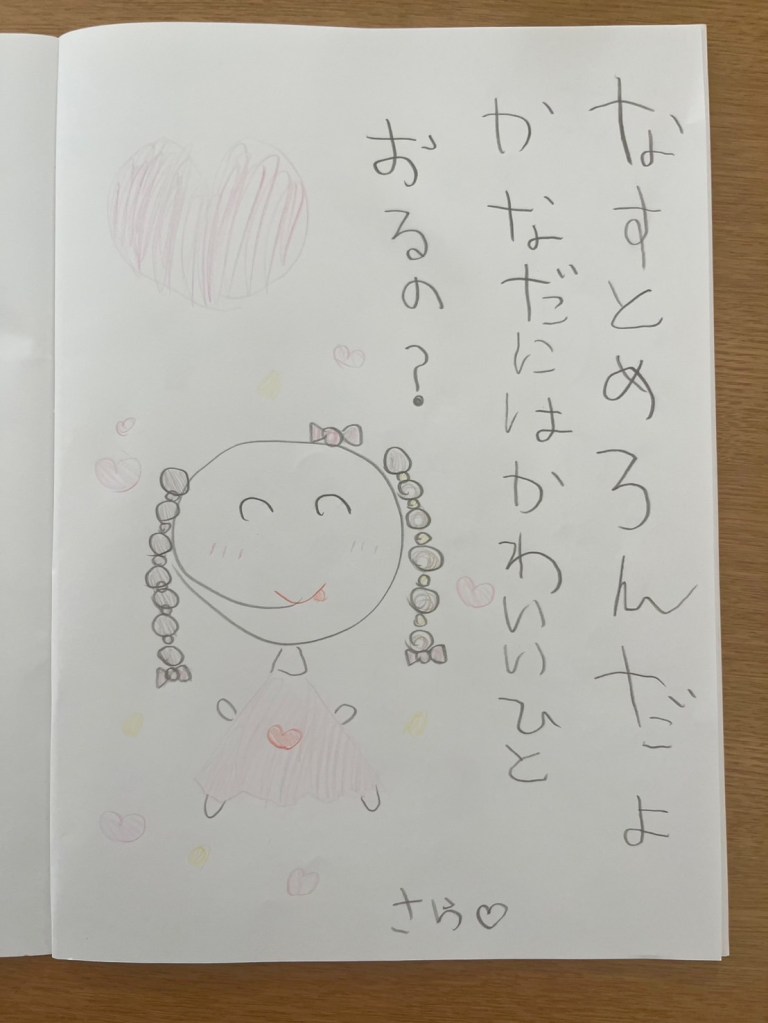 なすとめろんだよ
かなだにはかわいいひと
おるの?
さら♡